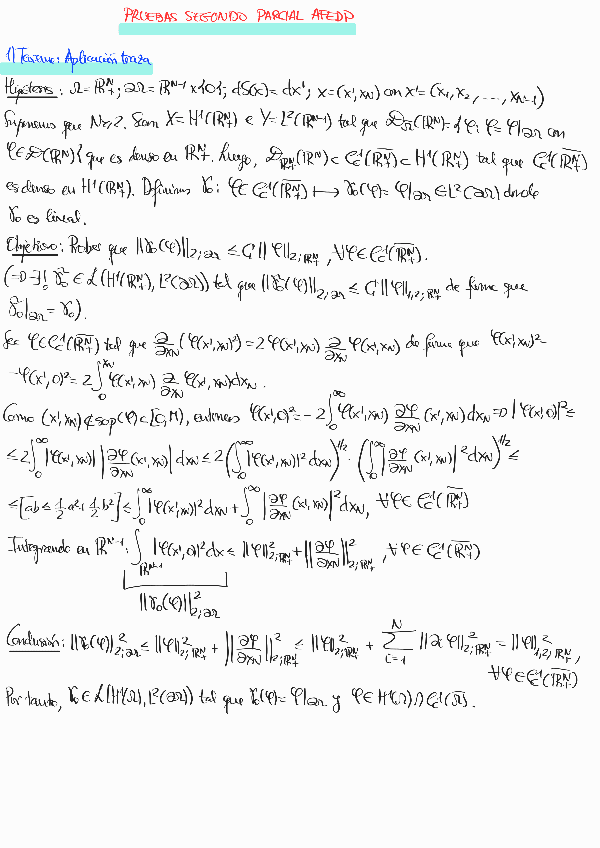 PRUEBAS SEGUNDO PARCIAL AFEDP
1) Teorema: Aplicación traza
Hipótesis: Ω=ℝ^N_+; ∂Ω=ℝ^{N-1}×{0}; dS(x)=dx'; x=(x',x_N) con x'=(x_1,x_2,...,x_{N-1})
Suponemos que N≥2. Sean X=H^1(ℝ^N_+) e Y=L^2(ℝ^{N-1}) tal que D_{\overline{Ω}}(ℝ^N)={φ: φ=φ|_{∂Ω} con
φ∈D(ℝ^N)} que es denso en ℝ^N_+. Luego, D_{ℝ^N_+}(ℝ^N)⊂C^1_c(\overline{ℝ^N_+})⊂H^1(ℝ^N_+) tal que C^1_c(\overline{ℝ^N_+})
es denso en H^1(ℝ^N_+). Definimos γ_0: φ∈C^1_c(\overline{ℝ^N_+}) ↦ γ_0(φ)=φ|_{∂Ω}∈L^2(∂Ω) donde
γ_0 es lineal.
Objetivo: Probar que ||γ_0(φ)||_{2;∂Ω} ≤ C||φ||_{2;ℝ^N_+}, ∀φ∈C^1_c(\overline{ℝ^N_+}).
(⇒ ∃! γ_0∈L(H^1(ℝ^N_+), L^2(∂Ω)) tal que ||γ_0(φ)||_{2;∂Ω} ≤ C||φ||_{1,2;ℝ^N_+} de forma que
γ_0|_{∂Ω}=γ_0).
Sea φ∈C^1_c(\overline{ℝ^N_+}) tal que ∂/∂x_N (φ(x',x_N)^2)=2φ(x',x_N) ∂/∂x_N φ(x',x_N) de forma que φ(x',x_N)^2-
-φ(x',0)^2=2∫_0^{x_N} φ(x',x_N) ∂/∂x_N φ(x',x_N)dx_N.
Como (x',x_N)∉sop(φ)⊂[0,M), entonces φ(x',0)^2=-2∫_0^∞ φ(x',x_N) ∂φ/∂x_N (x',x_N)dx_N ⇒ |φ(x',0)|^2≤
≤2∫_0^∞ |φ(x',x_N)| |∂φ/∂x_N (x',x_N)| dx_N ≤ 2(∫_0^∞ |φ(x',x_N)|^2 dx_N)^{1/2} · (∫_0^∞ |∂φ/∂x_N (x',x_N)|^2 dx_N)^{1/2} ≤
≤[ab≤½a²+½b²]≤∫_0^∞ |φ(x',x_N)|^2 dx_N+∫_0^∞ |∂φ/∂x_N (x',x_N)|^2 dx_N, ∀φ∈C^1_c(\overline{ℝ^N_+})
Integrando en ℝ^{N-1}: ∫_{ℝ^{N-1}} |φ(x',0)|^2 dx ≤ ||φ||^2_{2;ℝ^N_+}+||∂φ/∂x_N||^2_{2;ℝ^N_+}, ∀φ∈C^1_c(\overline{ℝ^N_+})
||γ_0(φ)||^2_{2;∂Ω}
Conclusión: ||γ_0(φ)||^2_{2;∂Ω} ≤ ||φ||^2_{2;ℝ^N_+}+||∂φ/∂x_N||^2_{2;ℝ^N_+} ≤ ||φ||^2_{2;ℝ^N_+}+∑_{i=1}^N ||∂_i φ||^2_{2;ℝ^N_+}=||φ||^2_{1,2;ℝ^N_+},
∀φ∈C^1_c(\overline{ℝ^N_+})
Por tanto, γ_0∈L(H^1(Ω),L^2(∂Ω)) tal que γ_0(φ)=φ|_{∂Ω} y φ∈H^1(Ω)∩C^1_c(\overline{Ω}).